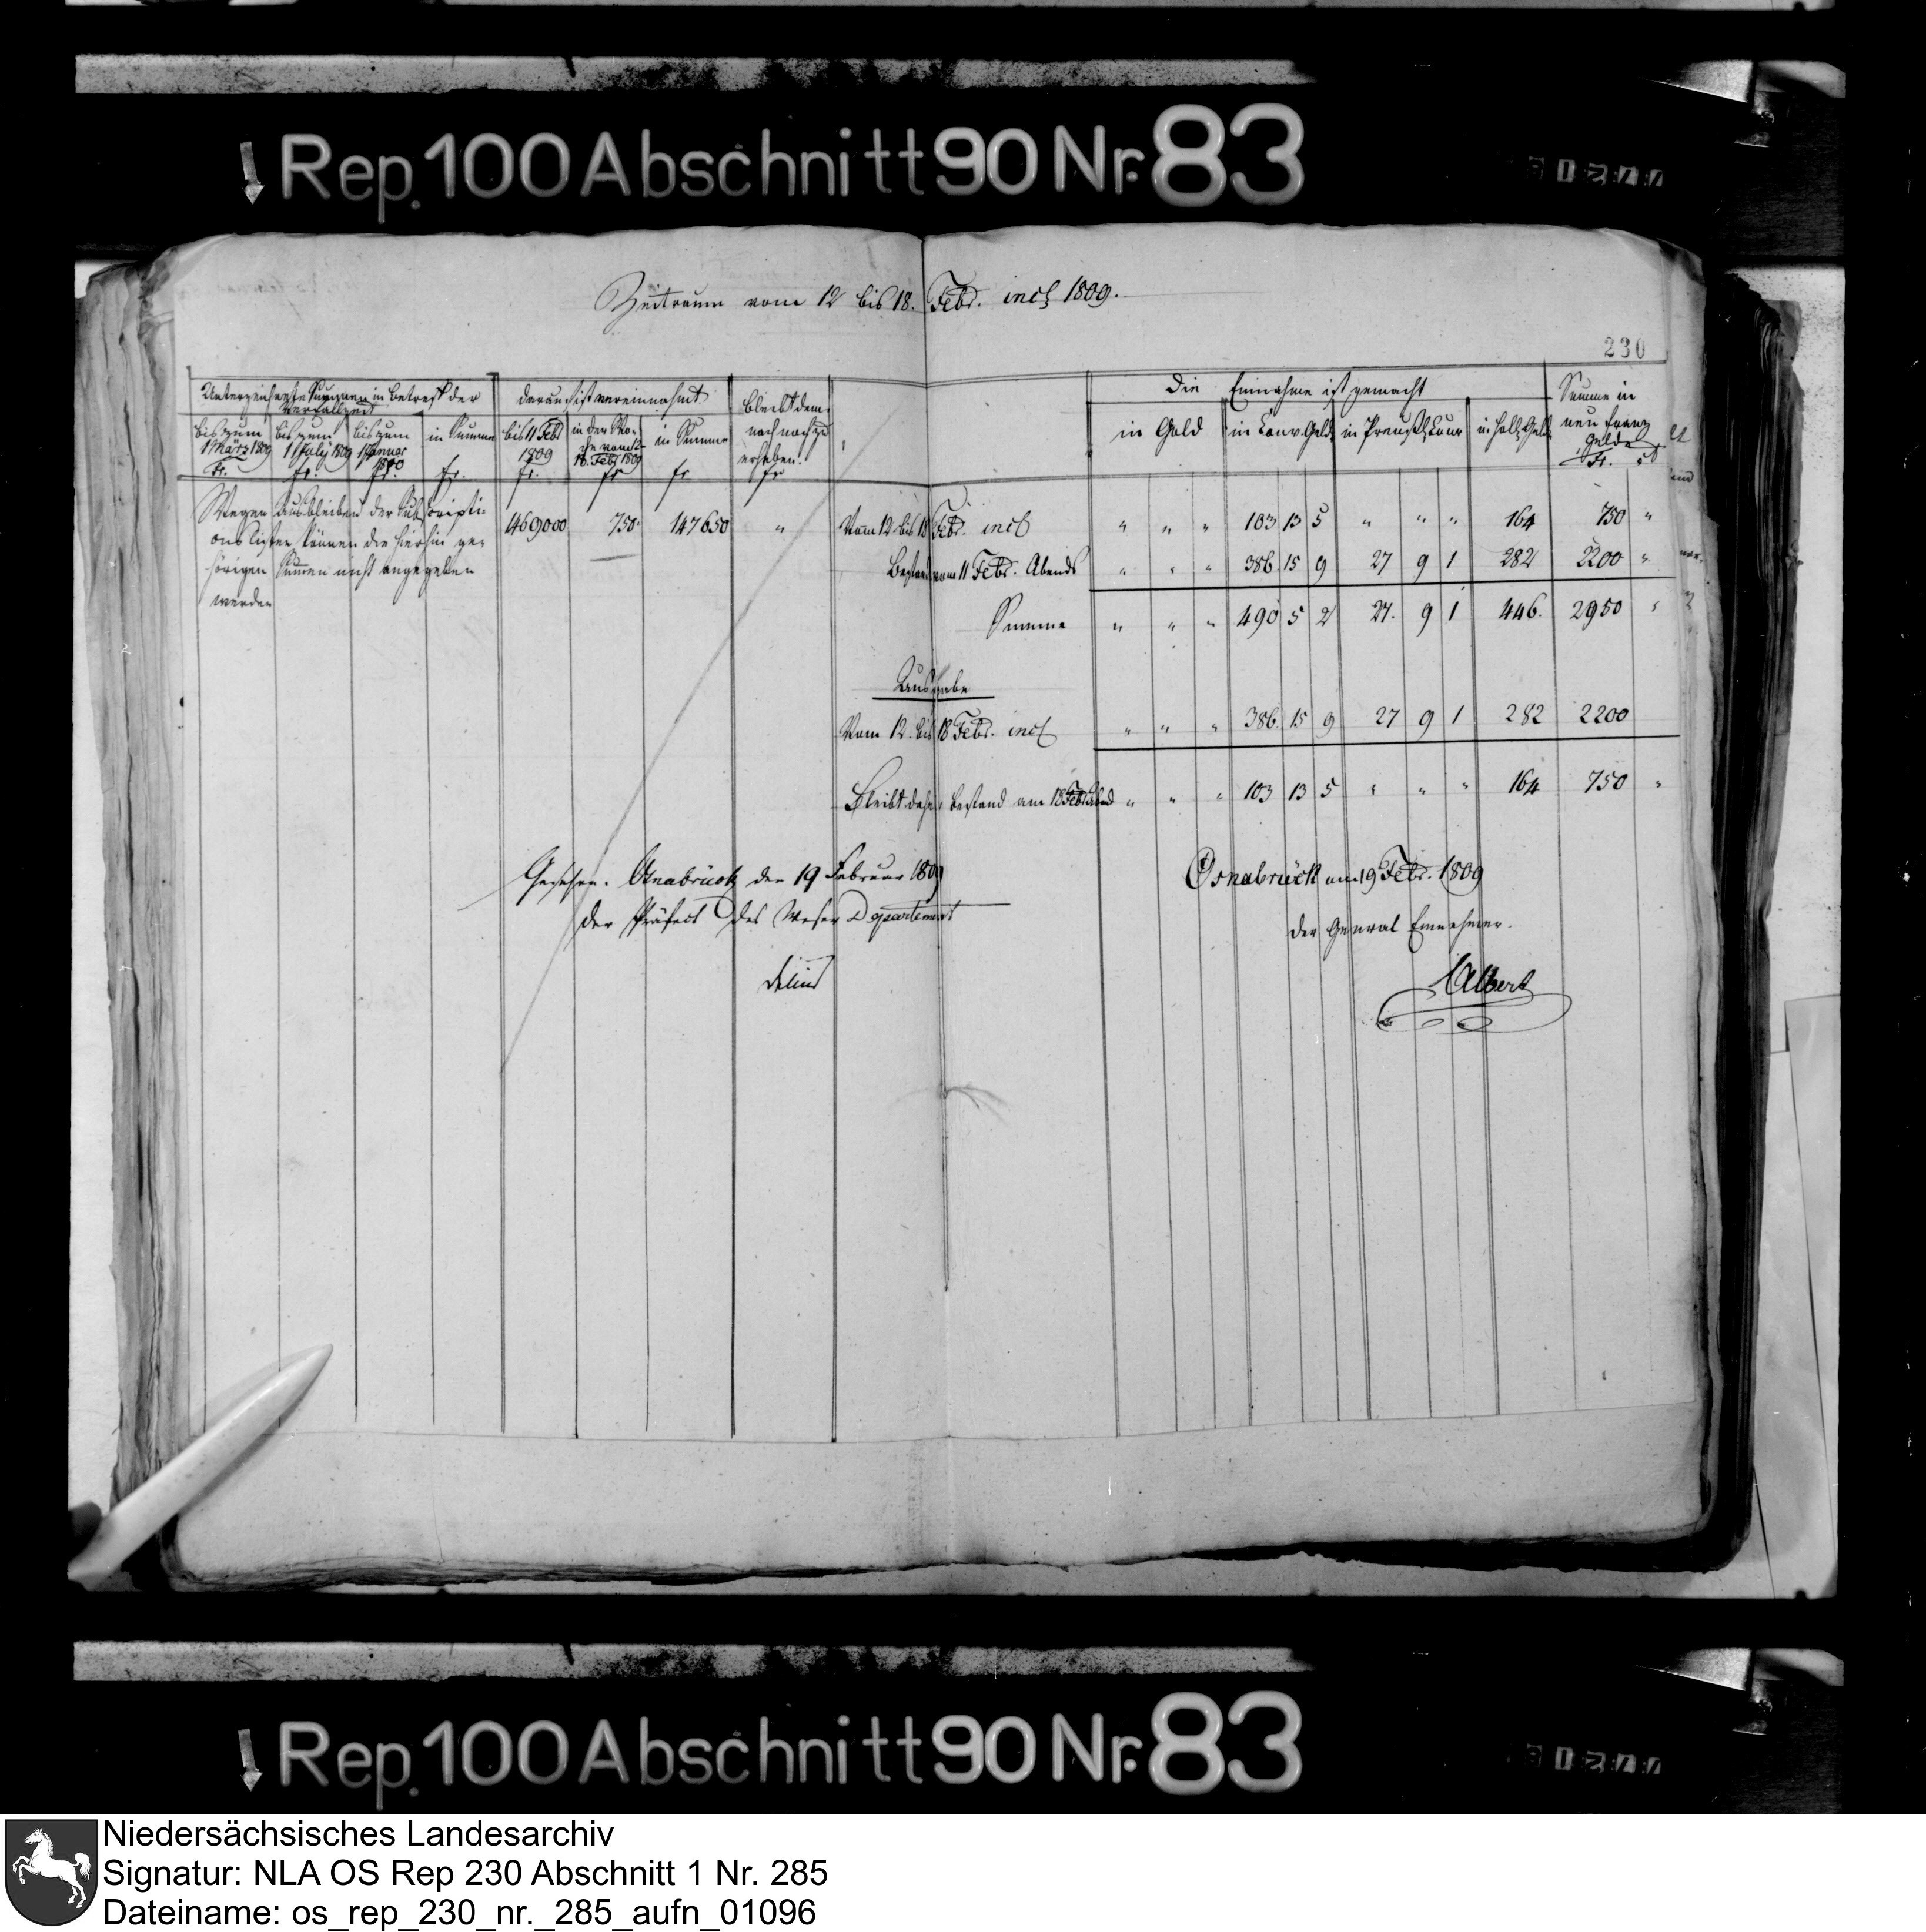 Rep. 100 Abschnitt 90 Nr. 83
Zeitraum vom 12 bis 18. Febr. incl 1809.
230
Unterzeichnete Summen in Betreff der Verfallzeit
bis zum 1 März 1809 fr.
bis zum 1 July 1809 fr.
bis zum 1 Januar 1810 fr.
in Summe fr.
darauf ist vereinnahmt
bis 11 Febr 1809 fr.
in der Woche vom 12 18. Febr 1809 fr
in Summe fr
bleibt dem nach noch zu erheben. fr
Die Einnahme ist gemacht
in Gold
in Conv. Geld
in Preuß. Cour
in holl. Geld
Summe in neu franz Gelde
Fr. ct
Wegen Ausbleiben der Subscripti-
ons Listen können die hierhin ge-
hörigen Summen nicht angegeben
werden
1469000 750 147650 "
Vom 12 bis 18 Febr. incl " " " 103 13 5 " " " 164 750 "
Bestand vom 11 Febr. Abends " " " 386 15 9 27 9 1 282 2200 "
Summe " " " 490 5 2 27. 9 1 446. 2950 "
Ausgabe
Vom 12. bis 18 Febr. incl " " " 386. 15 9 27 9 1 282 2200
Bleibt daher Bestand am 18 Febr Abend " " " 103 13 5 " " " 164 750 "
Gesehen. Osnabrück den 19 Februar 1809
Der Präfect des Weser Departement
Delius
Osnabrück am 19 Febr. 1809
Der General Einnehmer.
Albert
Rep. 100 Abschnitt 90 Nr. 83
Niedersächsisches Landesarchiv
Signatur: NLA OS Rep 230 Abschnitt 1 Nr. 285
Dateiname: os_rep_230_nr._285_aufn_01096